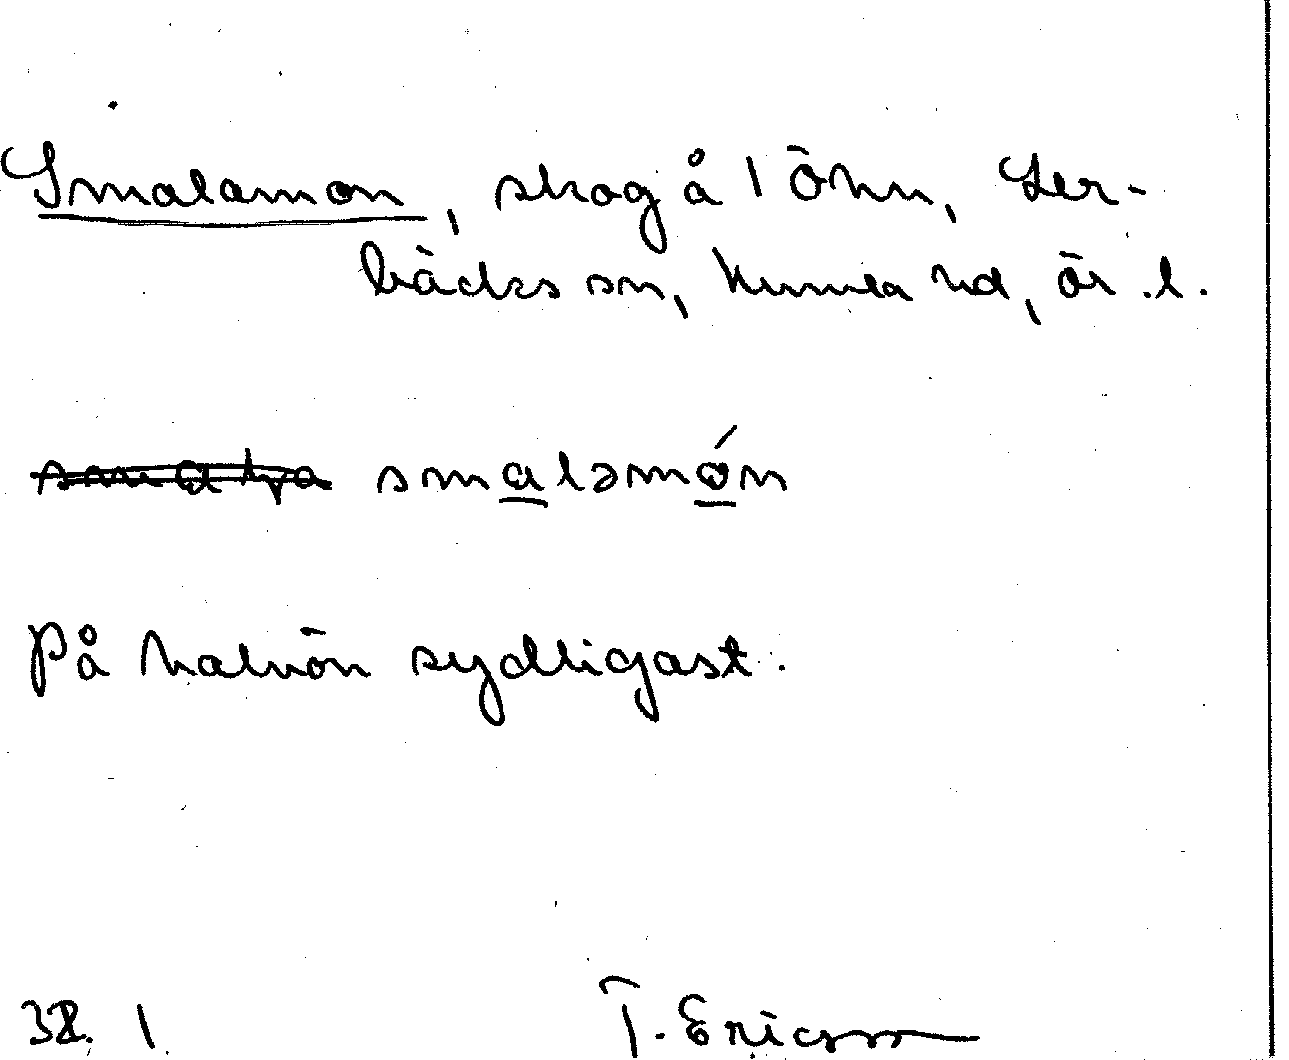 Smalamon, skog å 1 Öhn, Ler-
bäcks sn, Kumla hd, Ör. l.
smaləmón
På halvön sydligast.
38. 1 T. Ericsson